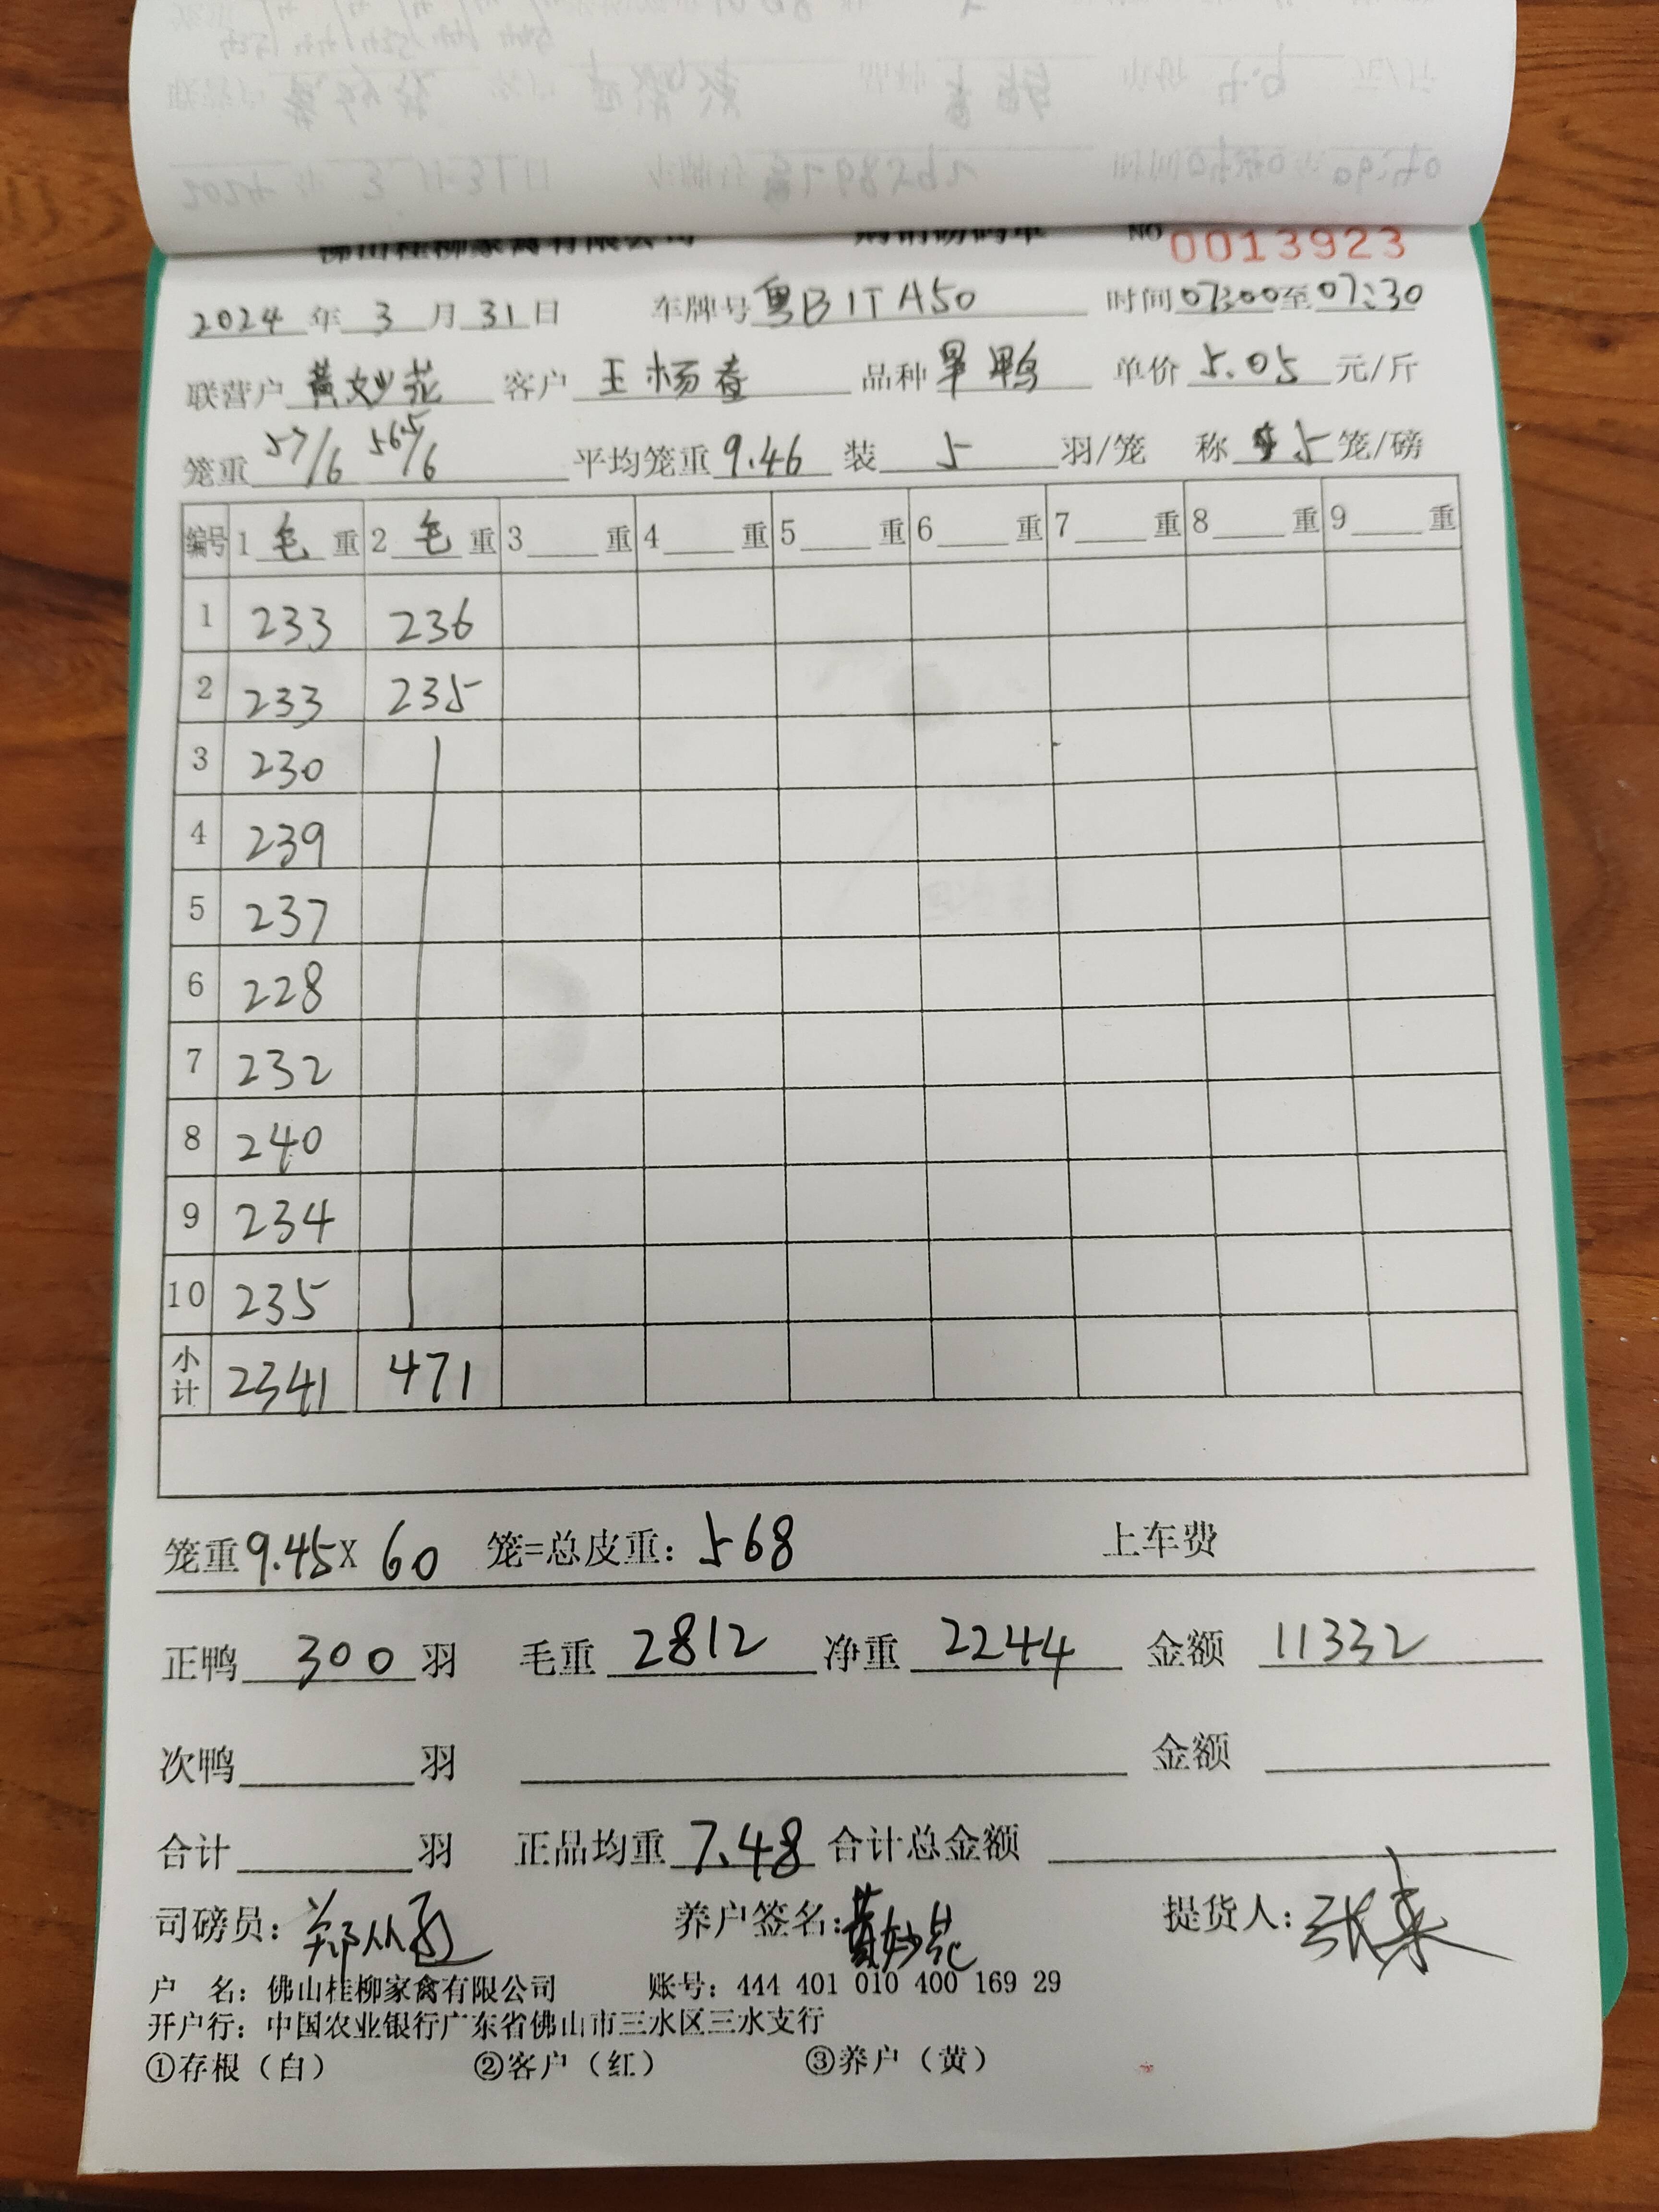 佛山桂柳家禽有限公司 购销磅码单 NO 0013923
2024 年 3 月 31 日 车牌号 粤B1TA50 时间 07:00 至 07:30
联营户 黄妙花 客户 王杨春 品种 旱鸭 单价 5.05 元/斤
笼重 57/6 56.5/6 平均笼重 9.46 装 5 羽/笼 称 5 笼/磅
编号 1 毛 重 2 毛 重 3 重 4 重 5 重 6 重 7 重 8 重 9 重
1 233 236
2 233 235
3 230
4 239
5 237
6 228
7 232
8 240
9 234
10 235
小计 2341 471
笼重 9.45 X 60 笼=总皮重: 568 上车费
正鸭 300 羽 毛重 2812 净重 2244 金额 11332
次鸭 羽 金额
合计 羽 正品均重 7.48 合计总金额
司磅员: 养户签名: 黄妙花 提货人:
户 名: 佛山桂柳家禽有限公司 账号: 444 401 010 400 169 29
开户行: 中国农业银行广东省佛山市三水区三水支行
①存根（白） ②客户（红） ③养户（黄）